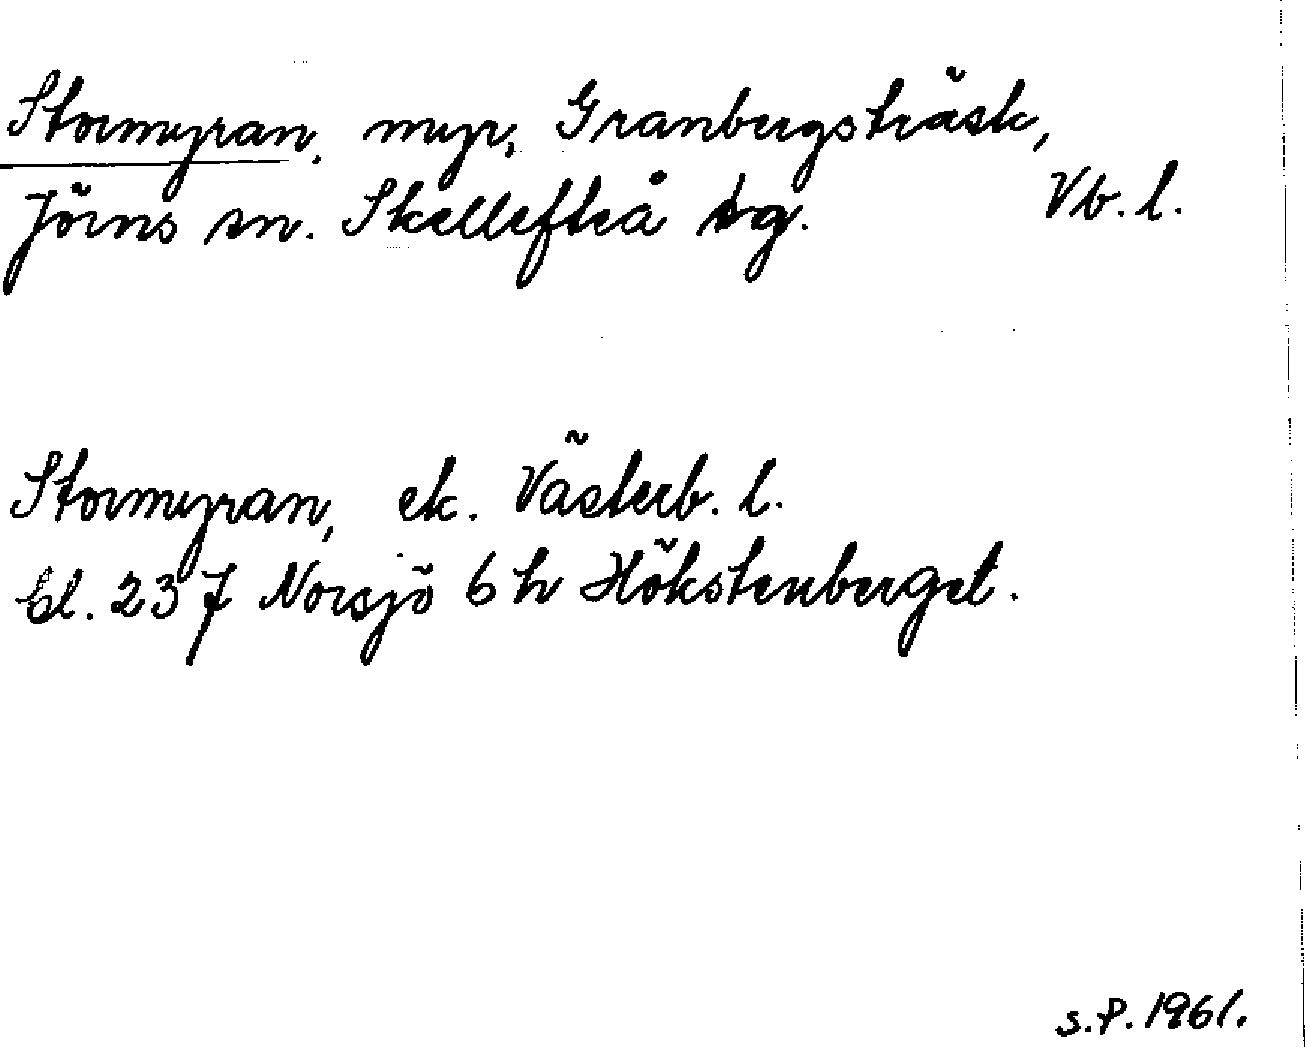 Stormyran, myr, Granbergsträsk,
Jörns sn. Skellefteå tg. Vb. l.
Stormyran, ek. Västerb. l.
bl. 23 J Norsjö 6 h Hökstenberget.
S.P. 1961.